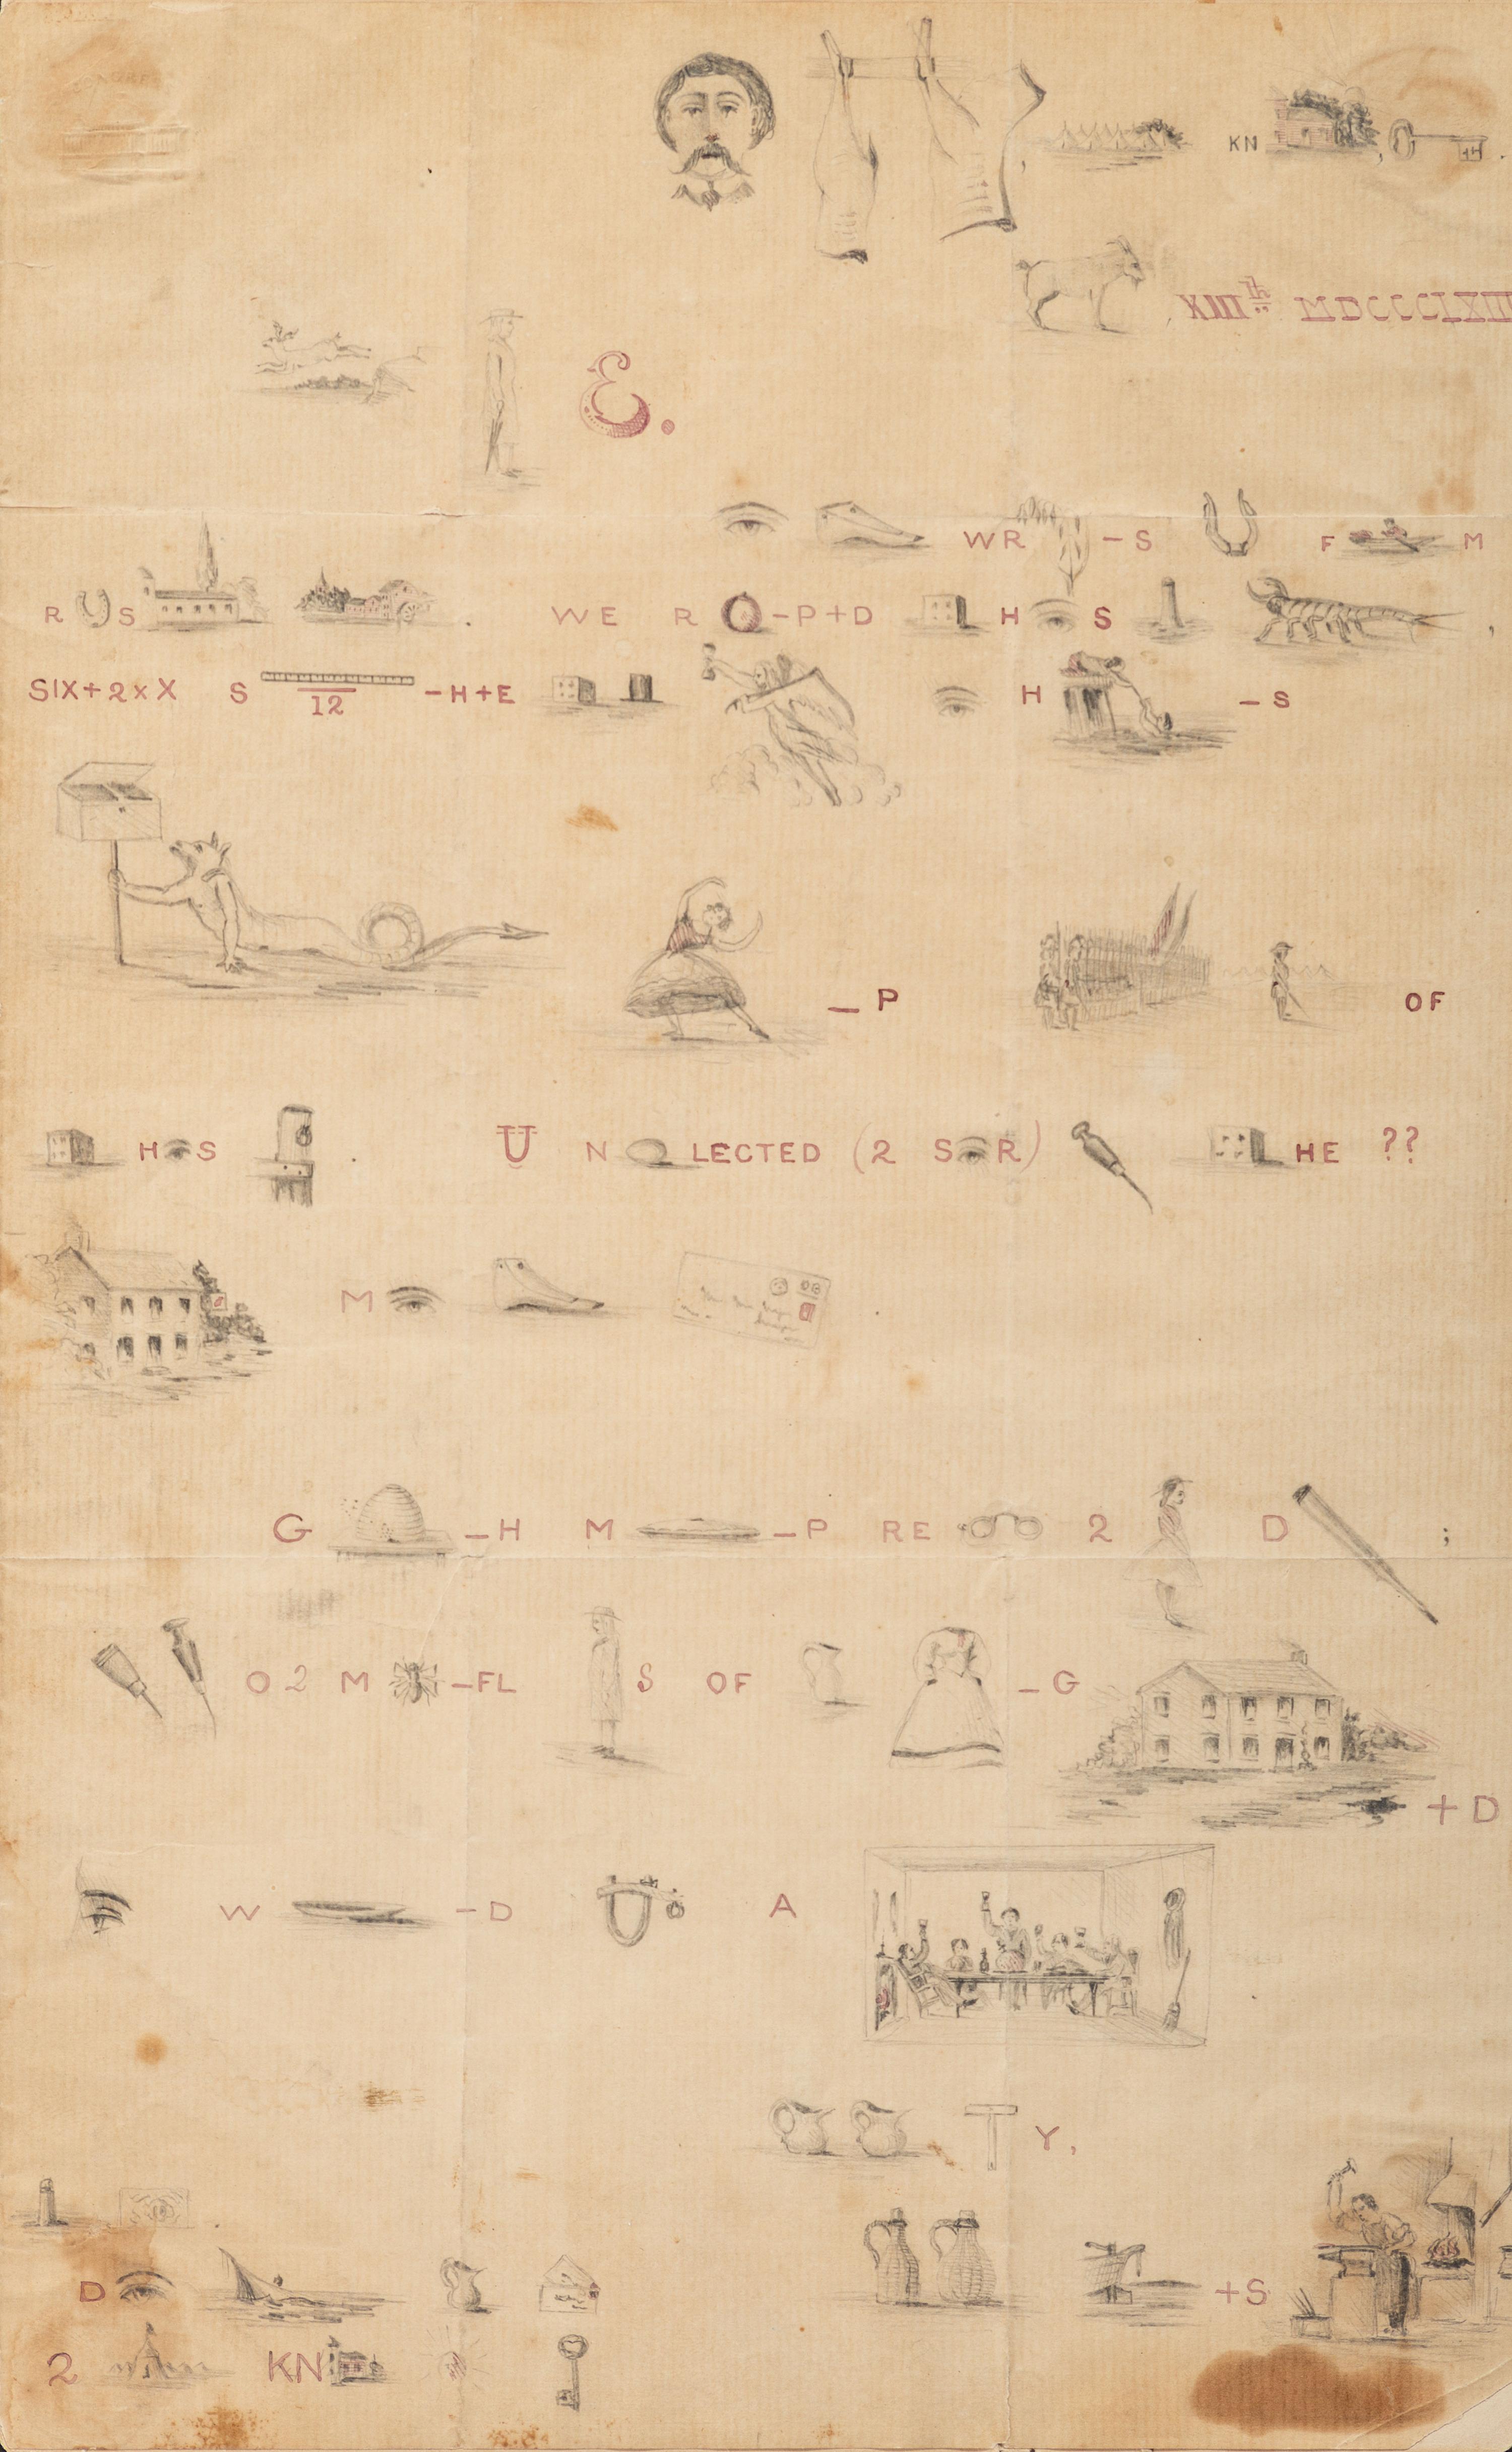 KN
XIIIth MDCCCLXIII
E.
WR - S F M
R S . WE R O-P+D H S ,
SIX+2xX S 12 -H+E H - S
- P OF
H S . U N LECTED (2 S R) HE ??
M
G -H M -P RE 2 D ;
O 2 M -FL S OF - G
+ D
W - D A
T Y,
D + S
2 KN